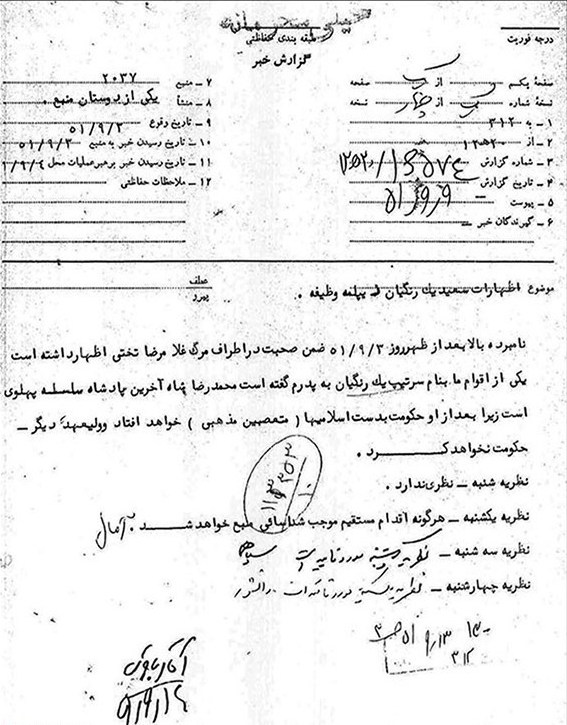 خیلی محرمانه
طبقه بندی حفاظتی
درجه فوریت
گزارش خبر
صفحه یکم از یک صفحه
نسخه شماره یک از چهار نسخه
۱ - به ۳۱۲
۲ - از ۲۰ هـ ۱۲
۳ - شماره گزارش
۴ - تاریخ گزارش
۵ - پیوست
۶ - گیرندگان خبر -
۷ - منبع ۲۰۳۷
۸ - منشأ یکی از دوستان منبع .
۹ - تاریخ وقوع ۵۱/۹/۲
۱۰ - تاریخ رسیدن خبر به منبع ۵۱/۹/۳
۱۱ - تاریخ رسیدن خبر برهبرعملیات محل
۱۲ - ملاحظات حفاظتی
عطف
پیرو
موضوع اظهارات سعید یک رنگیان وظیفه .
نامبرده بالا بعد از ظهر روز ۵۱/۹/۳ ضمن صحبت در اطراف مرگ غلامرضا تختی اظهار داشته است
یکی از اقوام ما بنام سرتیپ یک رنگیان به پدرم گفته است محمدرضا شاه آخرین پادشاه سلسله پهلوی
است زیرا بعد از او حکومت بدست اسلامیها ( متعصبین مذهبی ) خواهد افتاد و ولیعهد دیگر -
حکومت نخواهد کرد .
نظریه شنبه - نظری ندارد .
نظریه یکشنبه - هرگونه اقدام مستقیم موجب شناسائی منبع خواهد شد . آمال
نظریه سه شنبه - نظریه یکشنبه مورد تایید است
نظریه چهارشنبه - نظریه
۳۱۲